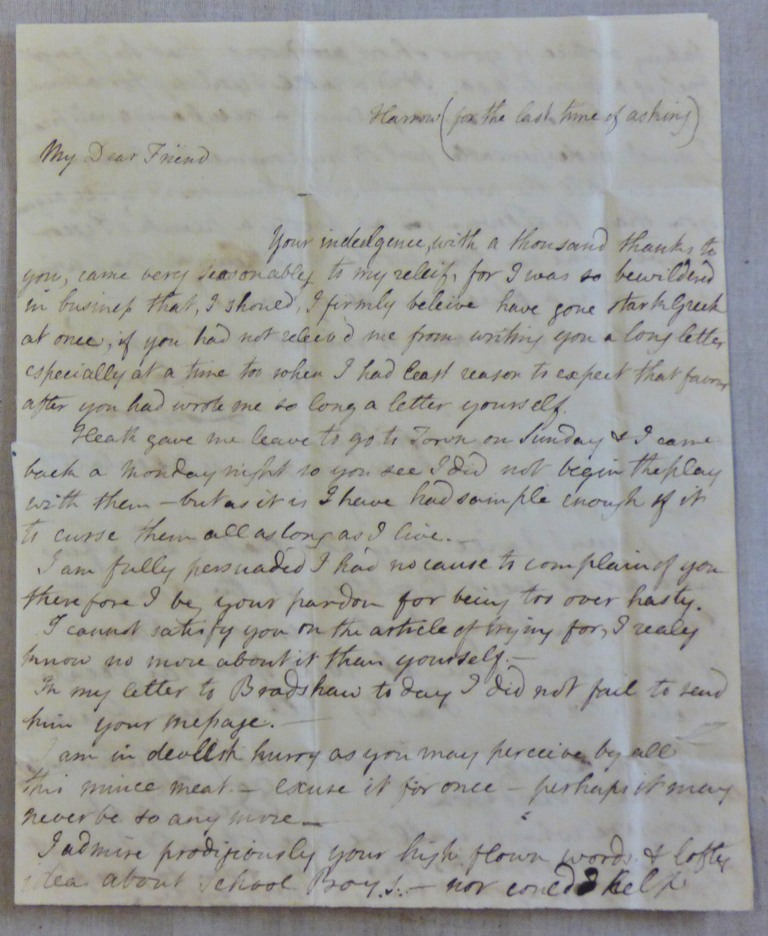 Harrow (for the last time of asking)
My Dear Friend
Your indulgence, with a thousand thanks to
you, came very seasonably to my releif, for I was so bewildered
in businefs that, I should, I firmly beleive have gone stark Greek
at once, if you had not releiv'd me from writing you a long letter
especially at a time too when I had least reason to expect that favour
after you had wrote me so long a letter yourself.
Heath gave me leave to go to Town on Sunday & I came
back a Monday night so you see I did not begin the play
with them — but as it is I have had sample enough of it
to curse them all as long as I live. —
I am fully persuaded I had no cause to complain of you
therefore I beg your pardon for being too over hasty.
I cannot satisfy you on the article of trying for, I realy
know no more about it than yourself. —
In my letter to Bradshaw to day I did not fail to send
him your mefsage. —
I am in devilish hurry as you may perceive by all
this mince meat — excuse it for once — perhaps it may
never be so any more —
I admire prodigiously your high flown words & lofty
ideas about School Boys. — nor could I help